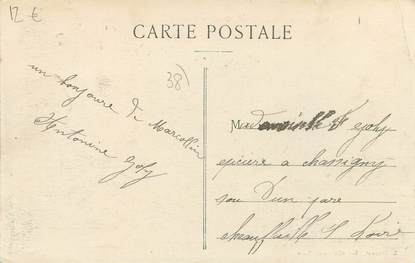 12 €
CARTE POSTALE
38
un bonjoure de Marcollin
Antonine Goly
M demoiselle Goly
epicière a chassigny
sou Dun gare
chauffailles S Loire